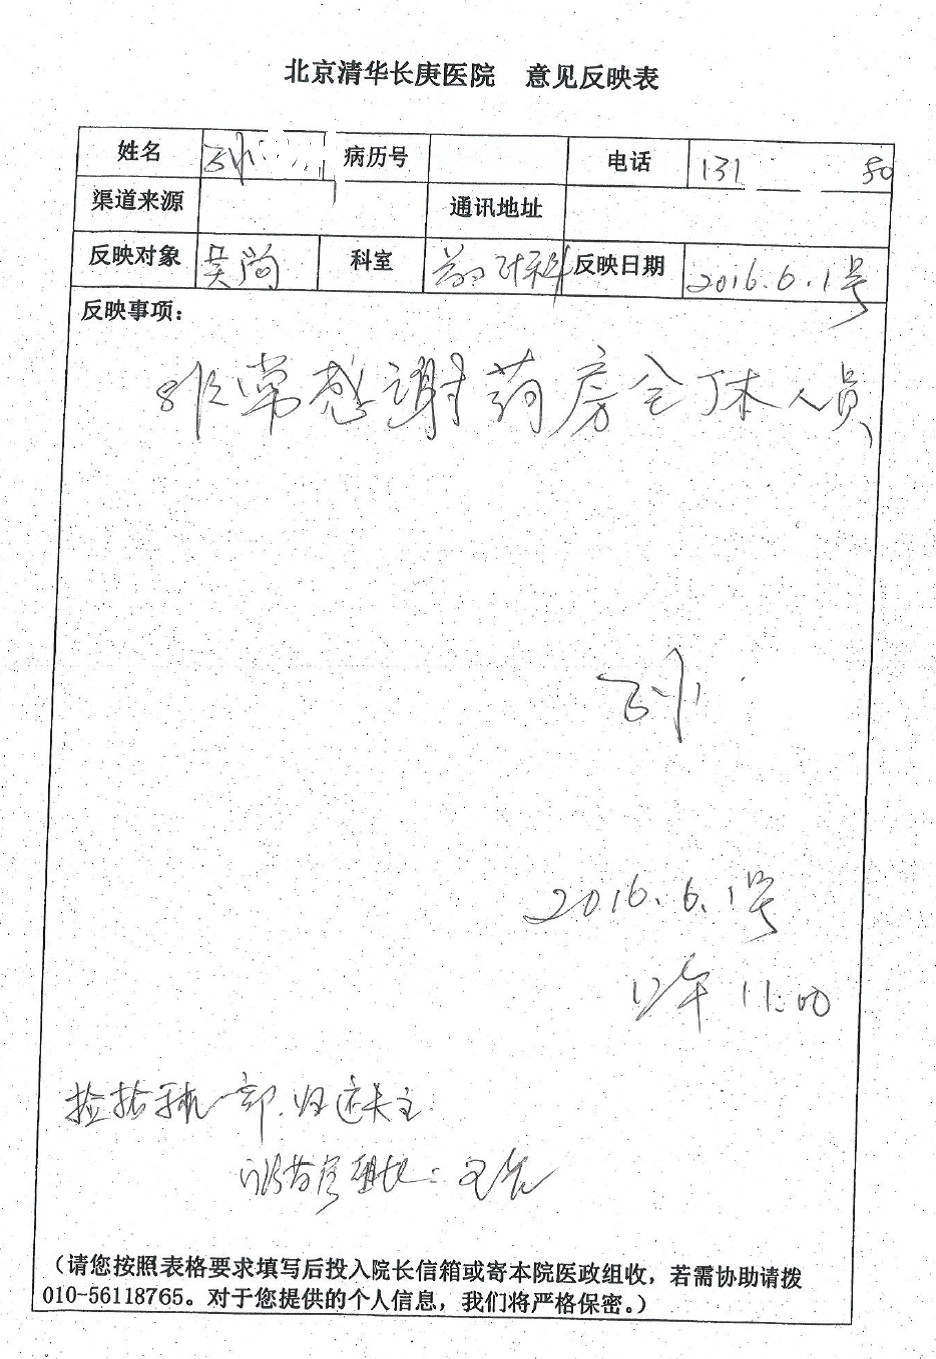 北京清华长庚医院 意见反映表
姓名 孙 病历号 电话 131 50
渠道来源 通讯地址
反映对象 吴尚 科室 药剂科 反映日期 2016.6.1号
反映事项:
非常感谢药房全体人员
孙
2016.6.1号
上午 11:00
捡拾手机一部.归还失主.
门诊药房组长:
(请您按照表格要求填写后投入院长信箱或寄本院医政组收,若需协助请拨
010-56118765。对于您提供的个人信息,我们将严格保密。)